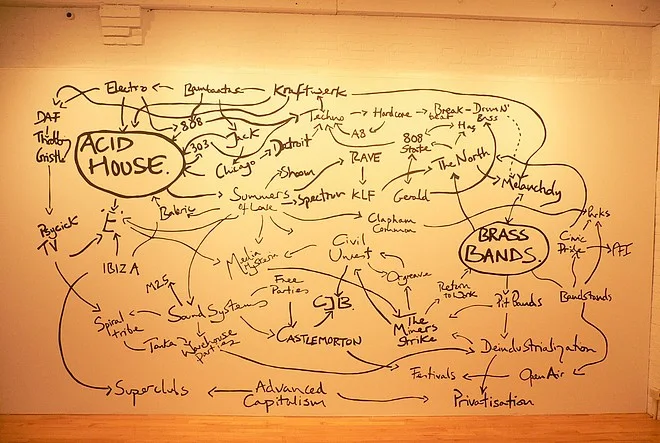 Electro
Bambaataa
Kraftwerk
DAF
808
Techno
Hardcore
Break-
beat
Drum N'
Bass
Throbbing
Gristle
ACID
HOUSE.
303
Jack
Detroit
A8
808
State
Chicago
Shoom
RAVE
The North
Melancholy
Summers
of Love
Spectrum
KLF
Gerald
Balearic
E.
Clapham
Common
Parks
Psychick
TV
BRASS
BANDS.
Civic
Pride
PFI
Media
Hysteria
Civil
Unrest
IBIZA
Orgreave
M25
Free
Parties
CJB.
Return
to Work
Pit Bands
Bandstands
Spiral
tribe
Sound Systems
The
Miners
Strike
Tonka
Warehouse
Parties
CASTLEMORTON
Deindustrialization
Festivals
Open Air
Superclubs
Advanced
Capitalism
Privatisation